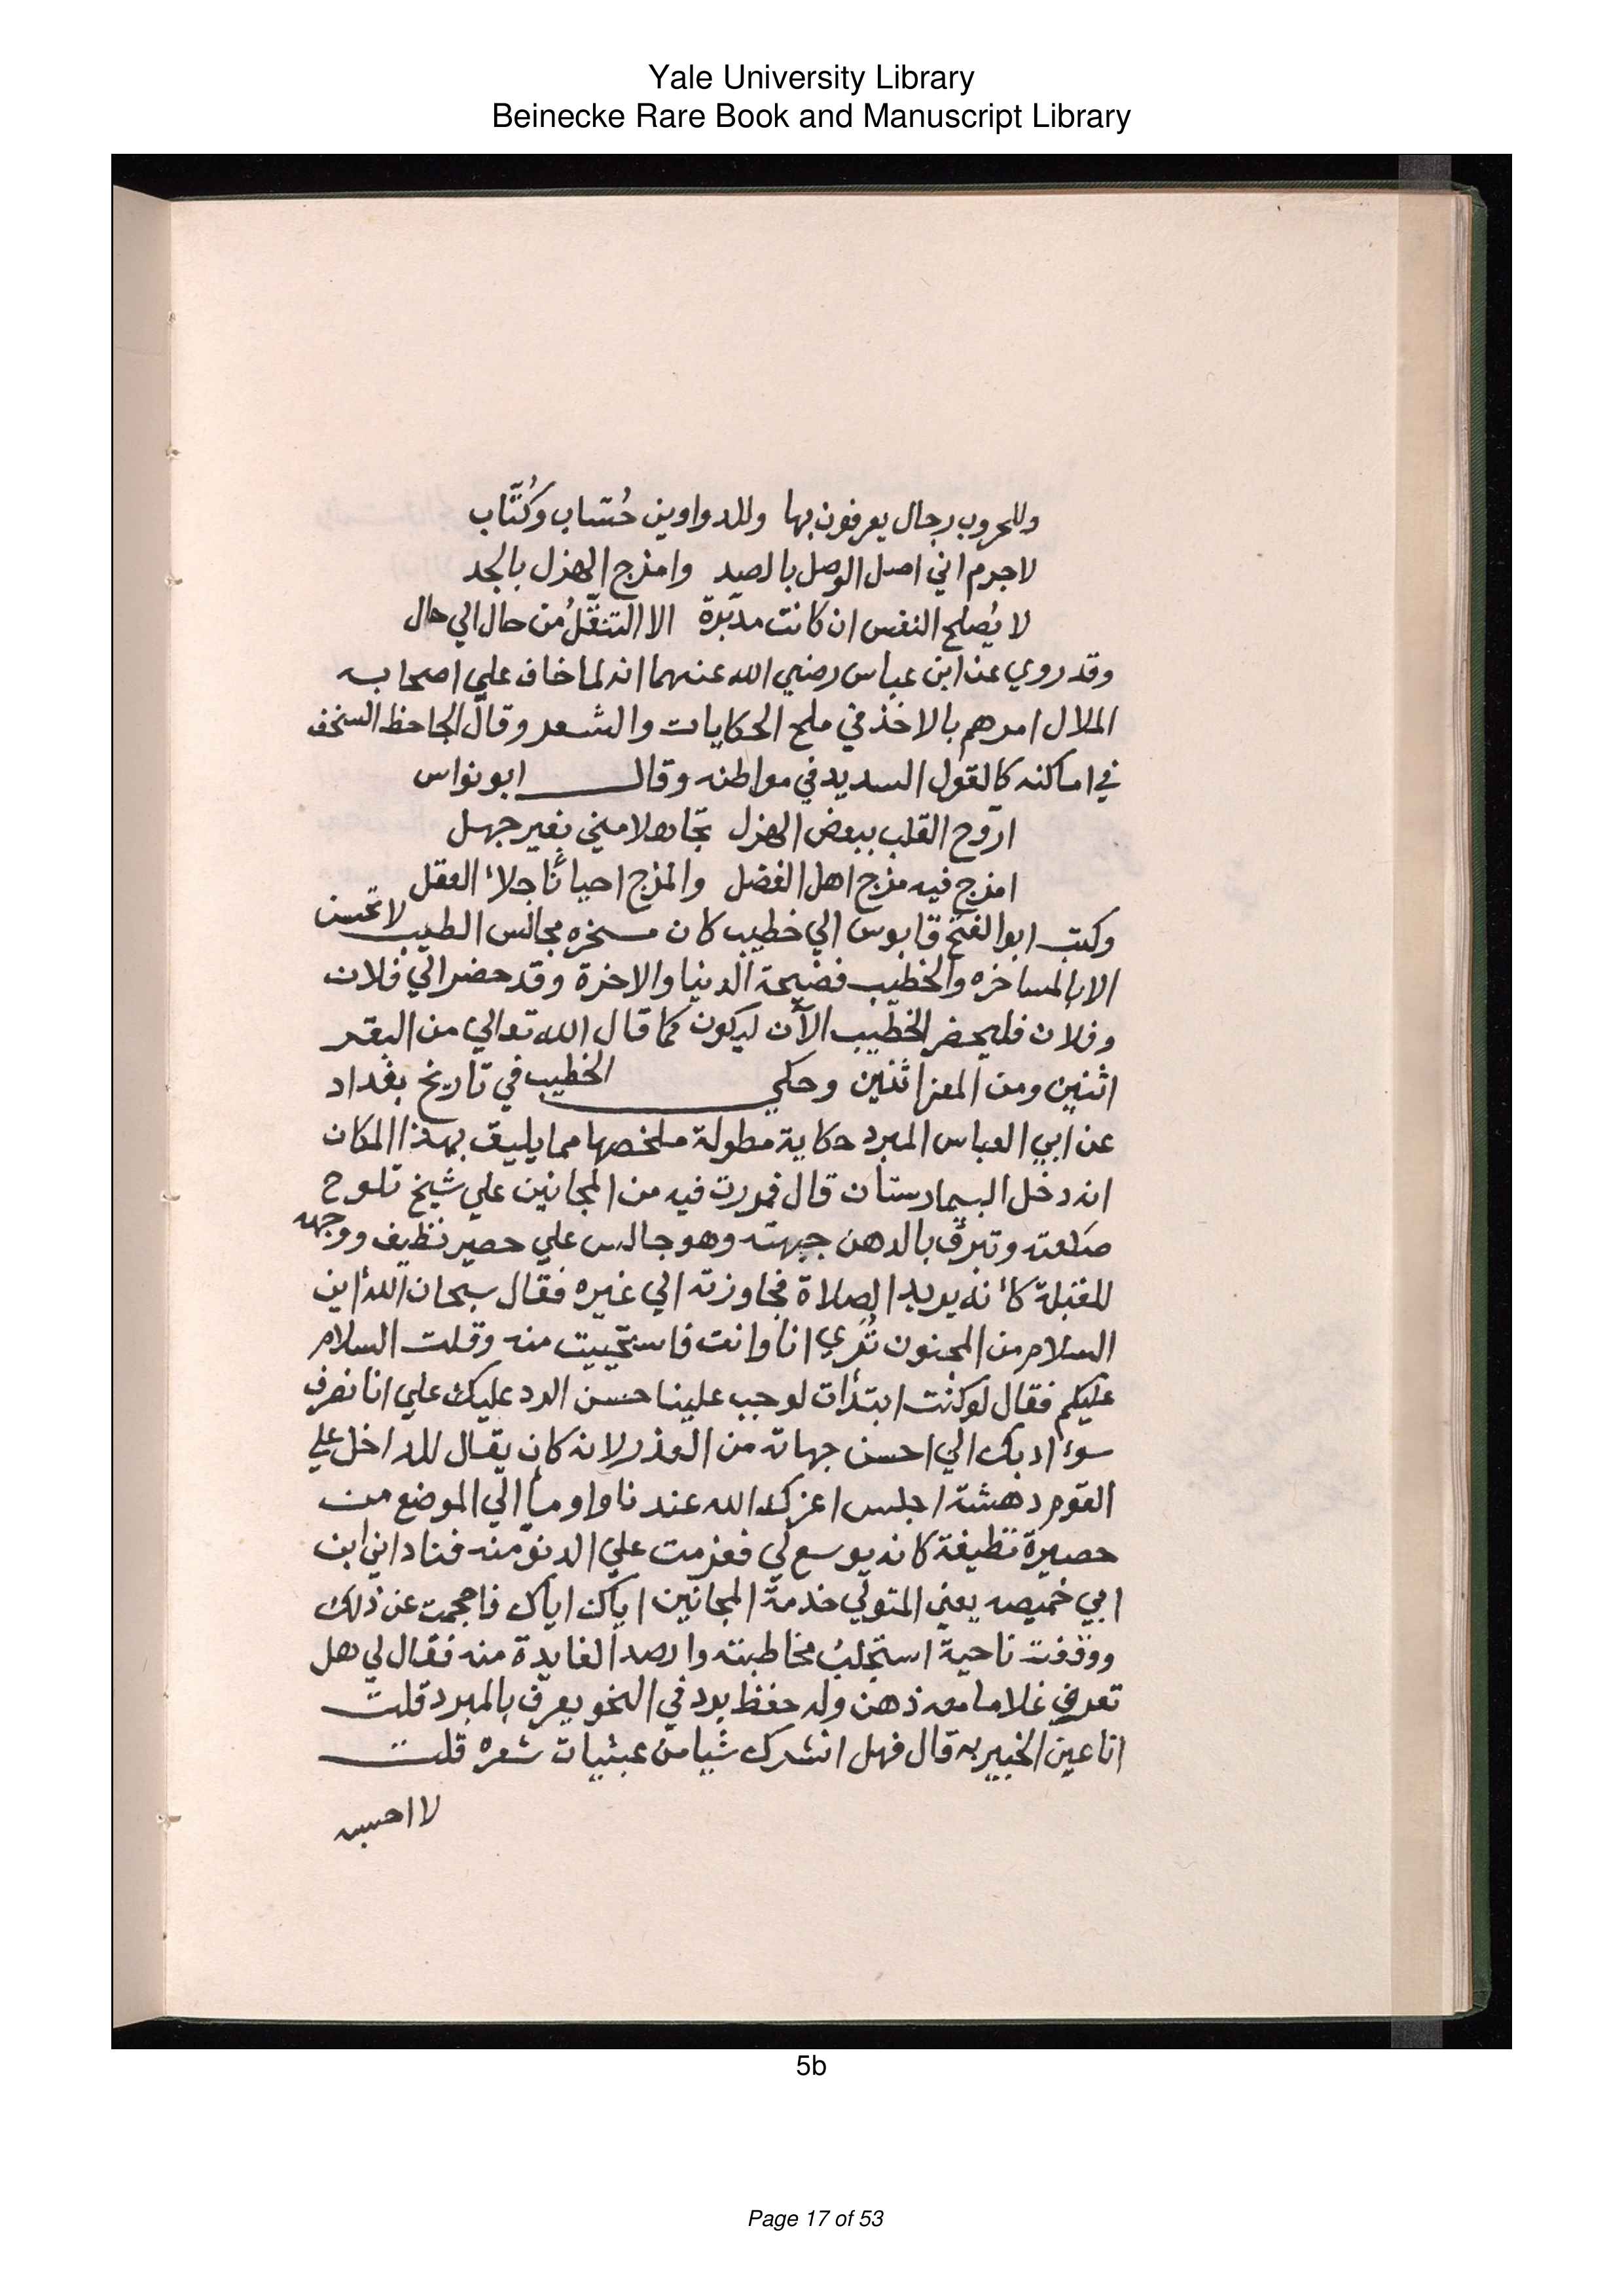 Yale University Library
Beinecke Rare Book and Manuscript Library
وللحروب رجال يعرفون بها وللدواوين حُسّاب وكُتَّاب
لاجرم اني اصل الوصل بالصد وامزج الهزل بالجد
لا يُصلح النفس ان كانت مدبّرة الا التنقّلُ من حال الي حال
وقد روي عن ابن عباس رضي الله عنهما انه لما خاف علي اصحابه
الملال امرهم بالاخذ في ملح الحكايات والشعر وقال الجاحظ السخف
في اماكنه كالقول السديد في مواطنه وقال ابو نواس
اروّح القلب ببعض الهزل تجاهلا مني بغير جهل
امزج فيه مزج اهل الفضل والمزج احيانًا جلاء العقل
وكتب ابو الفتح قابوس الي خطيب كان مسخره مجالس الطيب لا تحسن
الا بالمساخره والخطيب فضيحة الدنيا والاخرة وقد حضر الي فلان
وفلان فليحضر الخطيب الآن ليكون كما قال الله تعالي من البقر
اثنين ومن المعز اثنين وحكي الخطيب في تاريخ بغداد
عن ابي العباس المبرد حكاية مطولة ملخصها مما يليق بهذا المكان
انه دخل البيمارستان قال فمررت فيه من المجانين علي شيخ تلوح
صلعته وتبرق بالدهن جبهته وهو جالس علي حصير نظيف ووجهه
للقبلة كأنه يريد الصلاة فجاوزته الي غيره فقال سبحان الله اين
السلام من المجنون تُري انا وانت فاستحييت منه وقلت السلام
عليكم فقال لو كنت ابتدأت لوجب علينا حسن الرد عليك علي انا نصرف
سوء ادبك الي احسن جهاته من العذر لانه كان يقال للداخل علي
القوم دهشة اجلس اعزك الله عندنا واومأ الي الموضع من
حصيرة نظيفة كانه يوسع لي فعزمت علي الدنوّ منه فناداني ابن
ابي خميصه يعني المتولي خدمة المجانين اياك اياك فاحجمت عن ذلك
ووقفت ناحية استجلبُ مخاطبته وارصد الفايدة منه فقال لي هل
تعرف غلاما معه ذهن وله حفظ برد في النحو يعرف بالمبرد قلت
انا عين الخبير به قال فهل انشدك شيا من عبثيات شعره قلت
لا احسبه
5b
Page 17 of 53